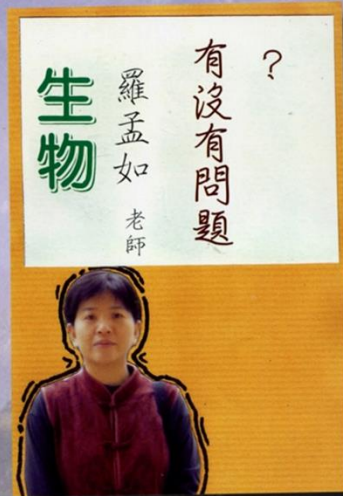 有沒有問題?
羅孟如 老師
生物